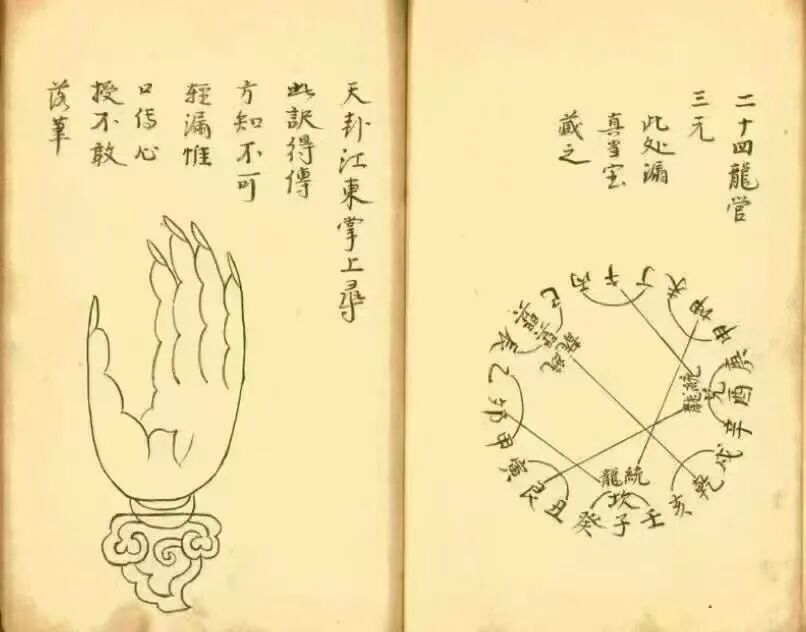 二十四龍管
三元
此处漏
真当宝
藏之
午
丁
未
坤
申
庚
酉
辛
戌
乾
亥
壬
子
癸
丑
艮
寅
甲
卯
乙
辰
巽
巳
丙
兌
統龍
坎
統龍
天卦江東掌上尋
此訣得傳
方知不可
輕漏惟
口传心
授不敢
落筆